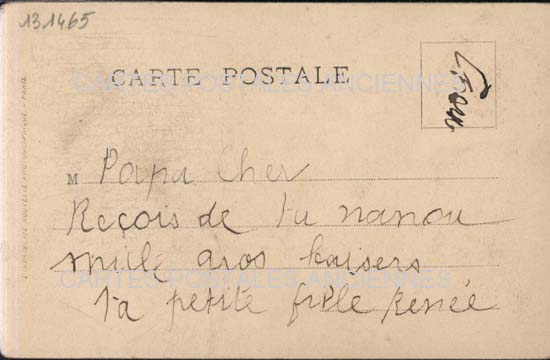 131465
CARTE POSTALE
CARTES POSTALES ANCIENNES
M Papa Cher
Reçois de ta nanou
mille gros baisers
CARTES POSTALES ANCIENNES
ta petite fille Renée